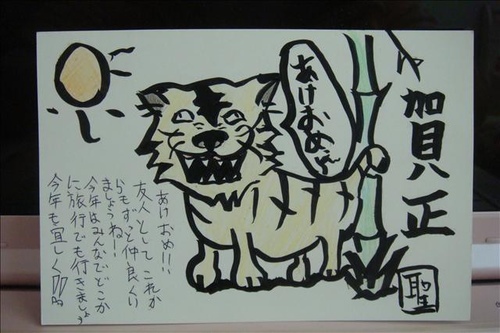 賀正
あけおめ
聖
あけおめ!!
友人として これか
らもずっと仲良くい
ましょうねー!
今年はみんなでどこか
に旅行でも行きましょう
今年も宜しく!!